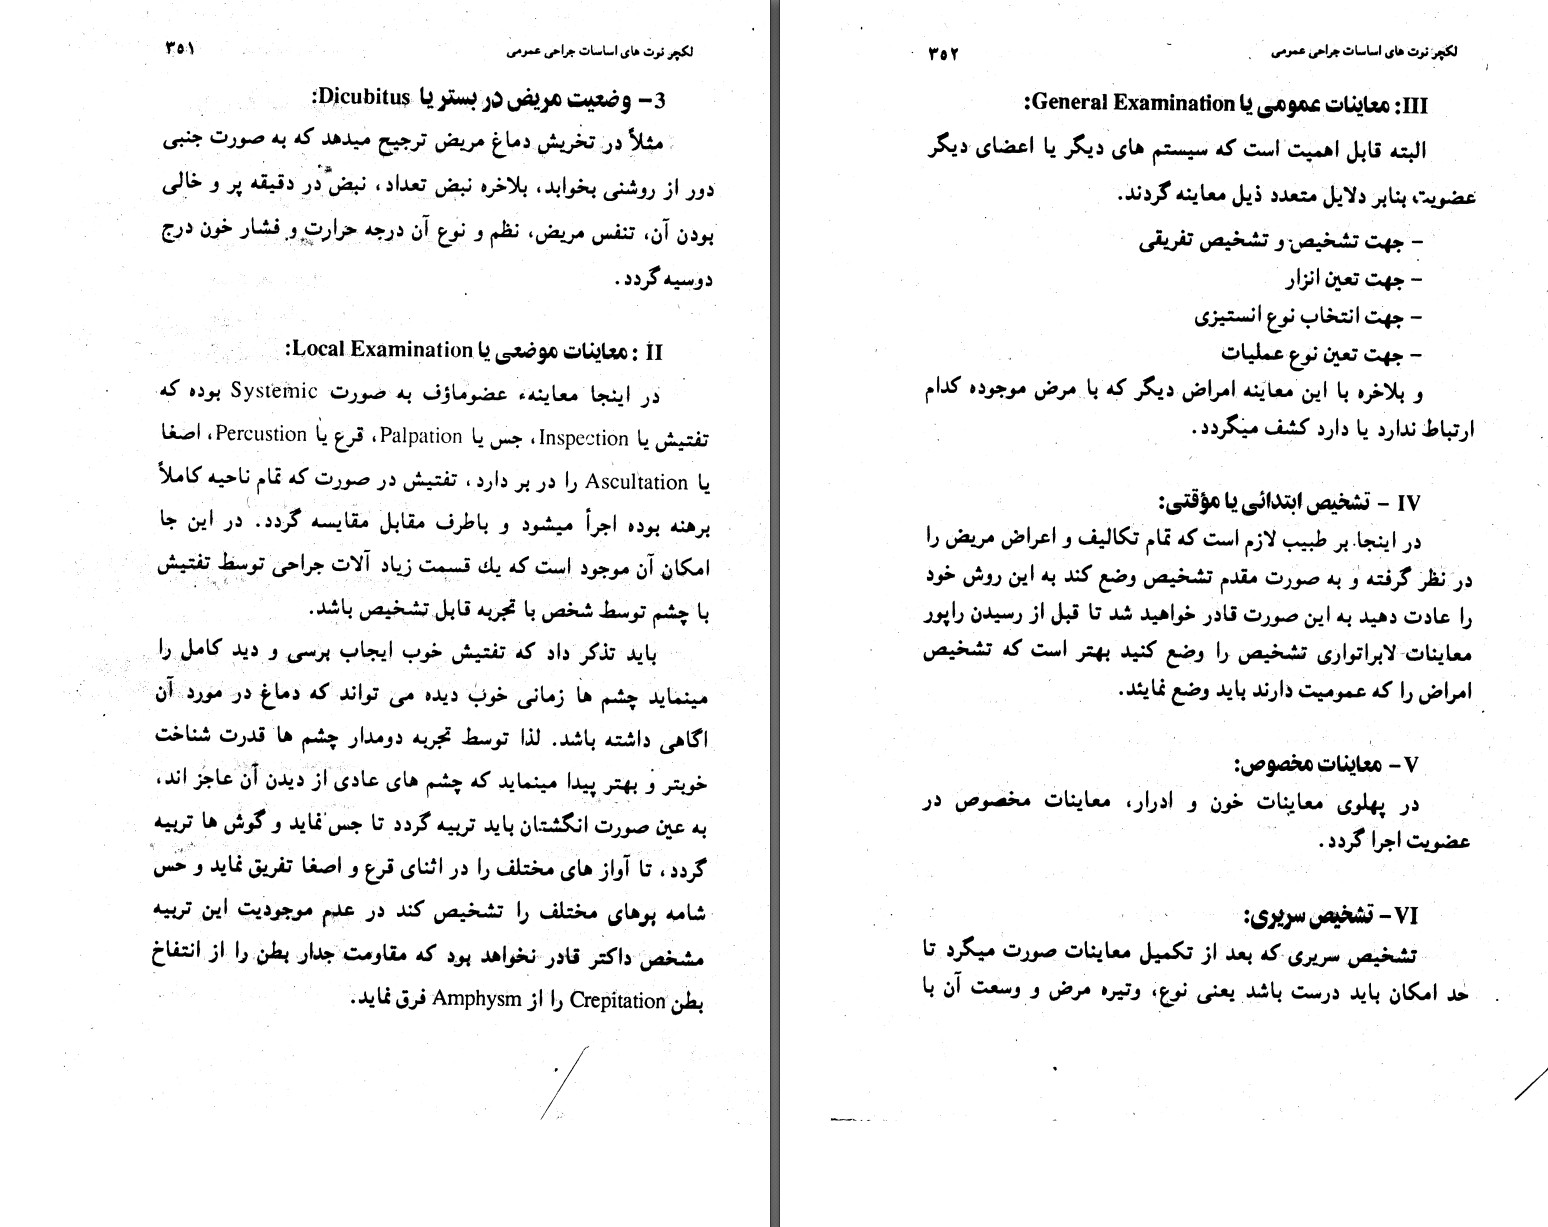 لکچر نوت های اساسات جراحی عمومی ۳۵۱
3- وضعیت مریض در بستر یا Dicubitus:
مثلاً در تخریش دماغ مریض ترجیح میدهد که به صورت جنبی
دور از روشنی بخوابد، بلاخره نبض تعداد، نبض در دقیقه پر و خالی
بودن آن، تنفس مریض، نظم و نوع آن درجه حرارت و فشار خون درج
دوسیه گردد.
II : معاینات موضعی یا Local Examination:
در اینجا معاینهء عضوماؤف به صورت Systemic بوده که
تفتیش یا Inspection، جس یا Palpation، قرع یا Percustion، اصغا
یا Ascultation را در بر دارد، تفتیش در صورت که تمام ناحیه کاملاً
برهنه بوده اجرأ میشود و باطرف مقابل مقایسه گردد. در این جا
امکان آن موجود است که یك قسمت زیاد آلات جراحی توسط تفتیش
با چشم توسط شخص با تجربه قابل تشخیص باشد.
باید تذکر داد که تفتیش خوب ایجاب برسی و دید کامل را
مینماید چشم ها زمانی خوب دیده می تواند که دماغ در مورد آن
اگاهی داشته باشد. لذا توسط تجربه دومدار چشم ها قدرت شناخت
خوبتر و بهتر پیدا مینماید که چشم های عادی از دیدن آن عاجز اند،
به عین صورت انگشتان باید تربیه گردد تا جس نماید و گوش ها تربیه
گردد، تا آواز های مختلف را در اثنای قرع و اصغا تفریق نماید و حس
شامه بوهای مختلف را تشخیص کند در عدم موجودیت این تربیه
مشخص داکتر قادر نخواهد بود که مقاومت جدار بطن را از انتفاخ
بطن Crepitation را از Amphysm فرق نماید.
لکچر نوت های اساسات جراحی عمومی ۳۵۲
III: معاینات عمومی یا General Examination:
البته قابل اهمیت است که سیستم های دیگر یا اعضای دیگر
عضویت بنابر دلایل متعدد ذیل معاینه گردند.
- جهت تشخیص و تشخیص تفریقی
- جهت تعین انزار
- جهت انتخاب نوع انستیزی
- جهت تعین نوع عملیات
و بلاخره با این معاینه امراض دیگر که با مرض موجوده کدام
ارتباط ندارد یا دارد کشف میگردد.
IV - تشخیص ابتدائی یا مؤقتی:
در اینجا بر طبیب لازم است که تمام تکالیف و اعراض مریض را
در نظر گرفته و به صورت مقدم تشخیص وضع کند به این روش خود
را عادت دهید به این صورت قادر خواهید شد تا قبل از رسیدن راپور
معاینات لابراتواری تشخیص را وضع کنید بهتر است که تشخیص
امراض را که عمومیت دارند باید وضع نمایند.
V- معاینات مخصوص:
در پهلوی معاینات خون و ادرار، معاینات مخصوص در
عضویت اجرا گردد.
VI- تشخیص سریری:
تشخیص سریری که بعد از تکمیل معاینات صورت میگرد تا
حد امکان باید درست باشد یعنی نوع، وتیره مرض و وسعت آن با